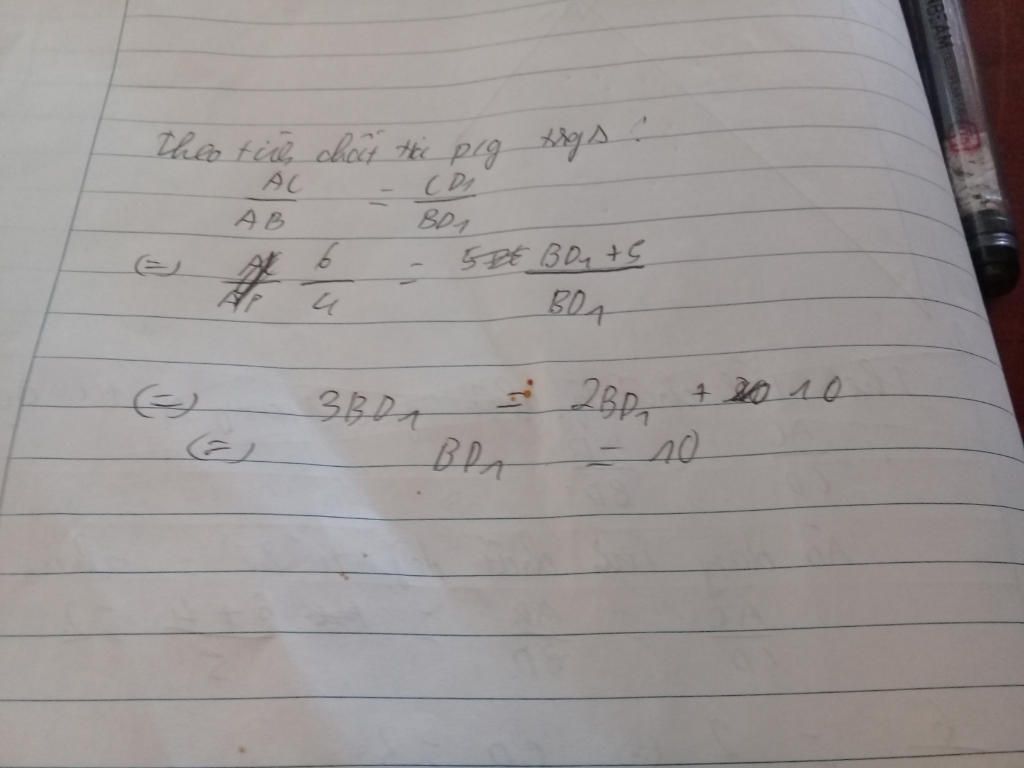 Theo tính chất tia p/g trg Δ:
AC / AB = CD1 / BD1
(=) 6 / 4 = BD1 + 5 / BD1
(=) 3BD1 = 2BD1 + 10
(=) BD1 = 10